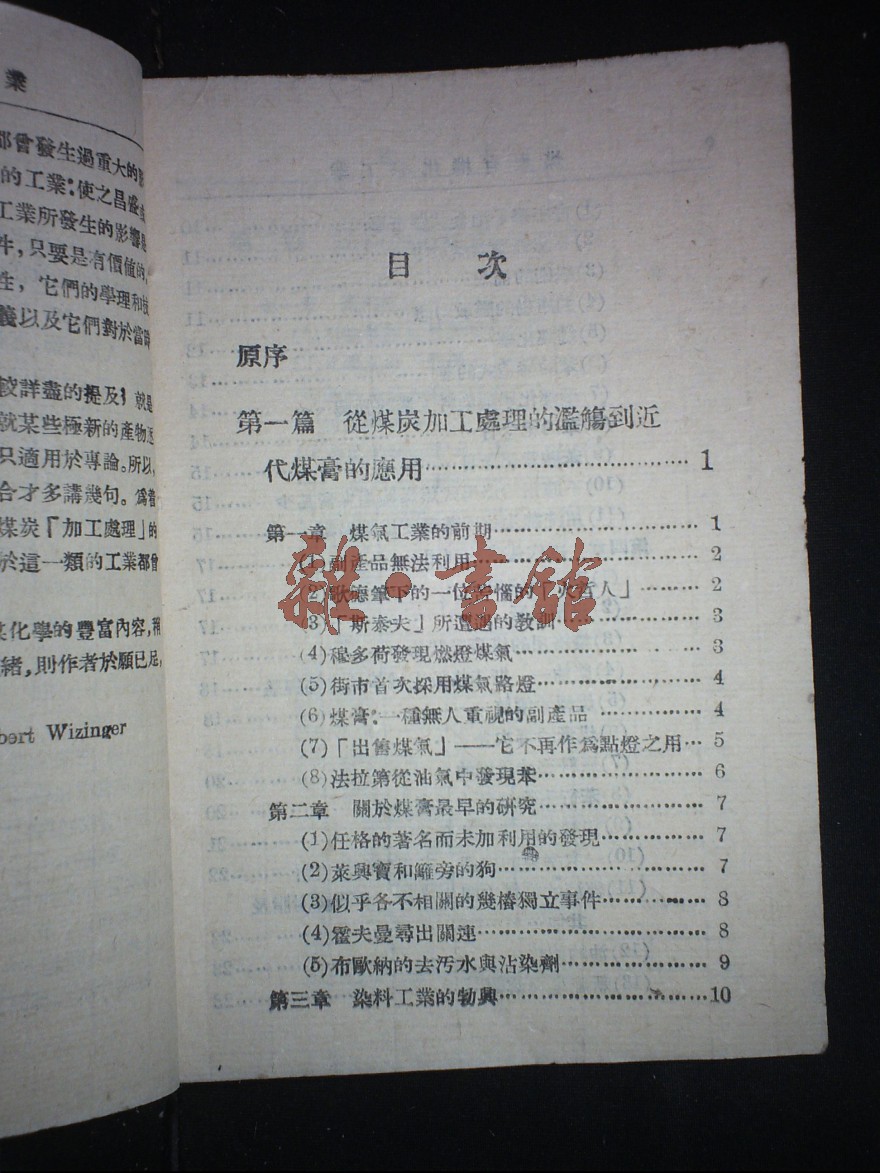 業
都曾發生過重大的影
的工業:使之昌盛
工業所發生的影響
件,只要是有價値的
生,它們的學理和技
義以及它們對於當時
較詳盡的提及;就是
就某些極新的產物
只適用於專論。所以,
合才多講幾句。爲着
煤炭「加工處理」的
於這一類的工業都曾
化學的豐富內容,稍
緒,則作者於願已足,
bert Wizinger
目 次
原序
第一篇 從煤炭加工處理的濫觴到近
代煤膏的應用………………………… 1
第一章 煤氣工業的前期………………………… 1
(1)副產品無法利用………………………… 2
(2)歌德筆下的一位 惱的「火 人」…… 2
(3)「斯泰夫」所遭遇的教訓……………… 3
(4)穆多荷發現燃燈煤氣…………………… 3
(5)街市首次採用煤氣路燈………………… 4
(6)煤膏:一種無人重視的副產品………… 4
(7)「出售煤氣」——它不再作爲點燈之用… 5
(8)法拉第從油氣中發現苯………………… 6
第二章 關於煤膏最早的硏究…………………… 7
(1)任格的著名而未加利用的發現………… 7
(2)萊興寶和籬旁的狗……………………… 7
(3)似乎各不相關的幾樁獨立事件………… 8
(4)霍夫曼尋出關連………………………… 8
(5)布歐納的去汚水與沾染劑……………… 9
第三章 染料工業的勃興…………………………10
雜·書館